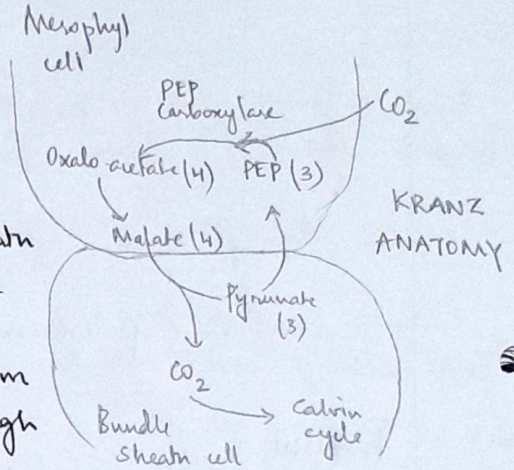 Mesophyl
cell
PEP
Carboxylase
CO2
Oxalo-acetate (4) PEP (3)
KRANZ
ANATOMY
Malate (4)
Pyruvate
(3)
CO2
Calvin
cycle
Bundle
Sheath cell